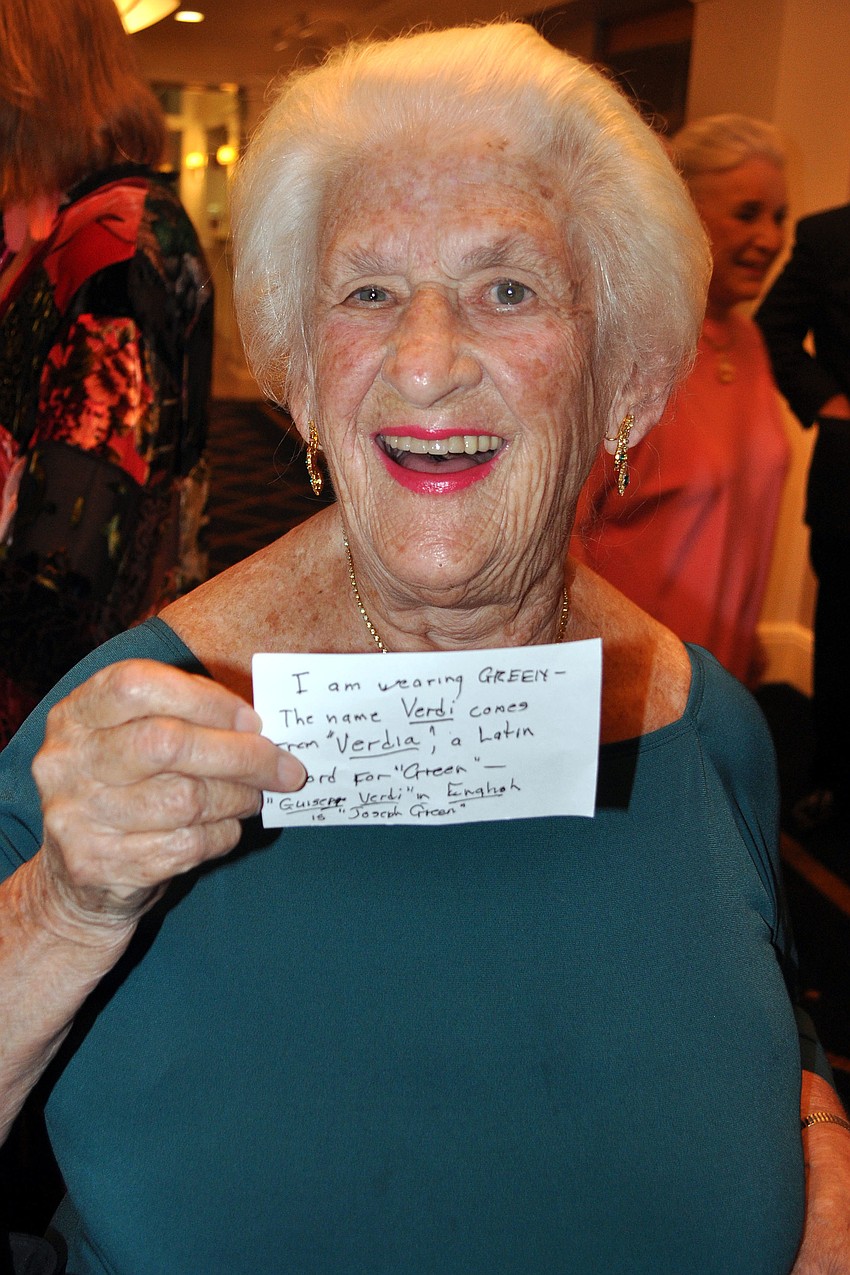 I am wearing GREEN—
The name Verdi comes
from "Verdia", a Latin
word for "Green"—
"Guisepp Verdi" in English
is "Joseph Green"